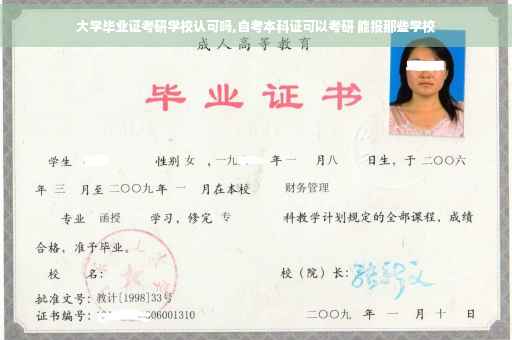 大学毕业证考研学校认可吗,自考本科证可以考研 能报那些学校
成人高等教育
毕业证书
学生 性别 女 ,一九 年一 月八 日生,于二〇〇六
年 三 月至二〇〇九年 一 月在本校 财务管理
专业 函授 学习,修完 专 科教学计划规定的全部课程,成绩
合格,准予毕业。
校 名: 校(院)长:
批准文号:教计[1998]33号
证书编号: 06001310 二〇〇九 年 一 月 十 日